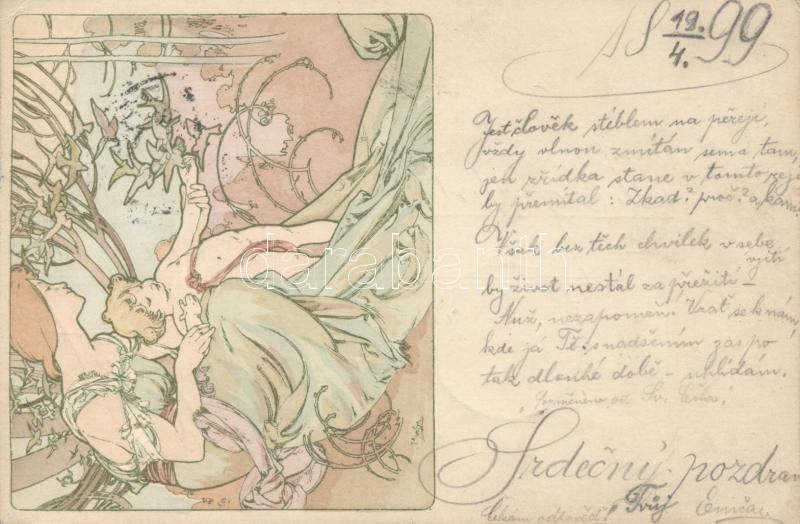 18 19./4. 99
Jest člověk stéblem na peřeji,
vždy vlnou zmítán sem a tam,
jen zřídka stane v tomto reji
by přemítal: Zkad? proč? a kam?
Však bez těch chvilek v sebe
vjití
by život nestál za přežití –
Nuž, nezapomeň! Vrať se k nám,
kde já Tě s nadšením zas po
tak dlouhé době – uhlídám.
Srdečný pozdrav
Čekám odpověď! Tvůj
darabanth.com